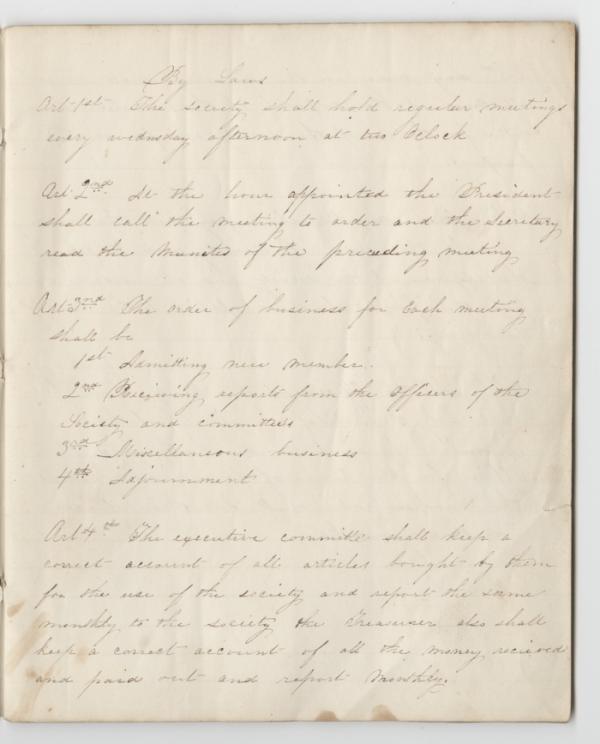 By Laws
Art 1st The society shall hold regular meetings
every wednesday afternoon at two Oclock
Art 2nd At the hour appointed the President
shall call the meeting to order and the Secretary
read the Munites of the preceding meeting
Art 3rd The order of business for Each meeting
shall be
1st Admitting new member.
2nd Recieving reports from the officers of the
Society and committees
3rd Miscellaneous business
4th Adjournment
Art 4th The executive committe shall keep a
correct account of all articles bought by them
for the use of the society and report the same
monthly to the society the Treasurer also shall
keep a correct account of all the money recieved
and paid out and report Monthly.